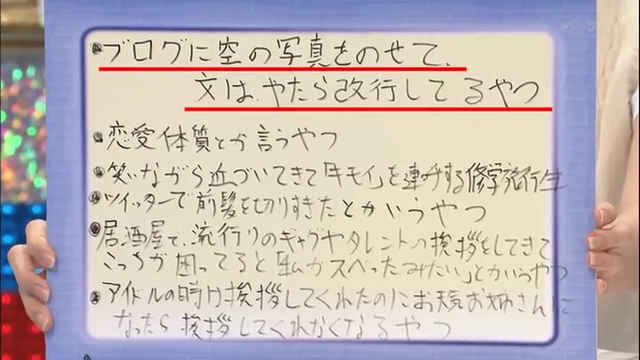 ・ブログに空の写真をのせて、
文は、やたら改行してるやつ
・恋愛体質とか言うやつ
・笑いながら近づいてきて「キモイ」を連呼する修学旅行生
・ツイッターで前髪を切りすぎたとかいうやつ
・居酒屋で、流行りのギャグやタレントの挨拶をしてきて
こっちが困ってると「私がスベったみたい」とかいうやつ
・アイドルの時は挨拶してくれたのにお天気お姉さんに
なったら挨拶してくれなくなるやつ